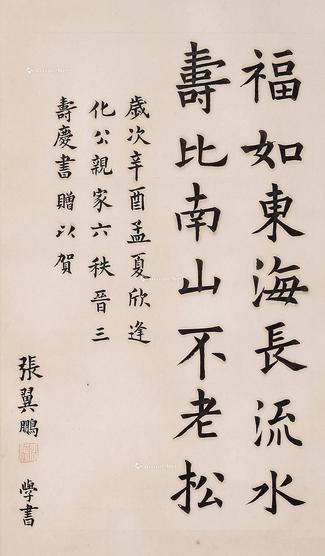 福如東海長流水
壽比南山不老松
歲次辛酉孟夏欣逢
化公親家六秩晉三
壽慶書贈以賀
張翼鵬
学書